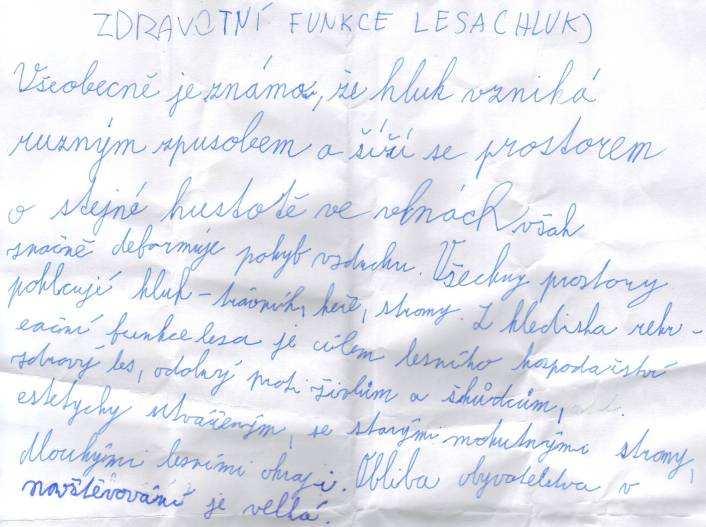 ZDRAVOTNÍ FUNKCE LESA CHLUK)
Všeobecně je známo, že hluk vzniká
ruzným zpusobem a šíří se prostorem
o stejné hustotě ve vlnách však
značně deformuje pohyb vzduchu. Všechny prostory
pohlcují hluk - trávník, keře, stromy. Z hlediska rekr-
eační funkce lesa je cílem lesního hospodařství
zdravý les, odolný proti živlům a škůdcům,
estetychy utvářeným, se starými mohutnými stromy,
dlouhými lesními okraji. Obliba obyvatelstva v
navštěvování je velká.